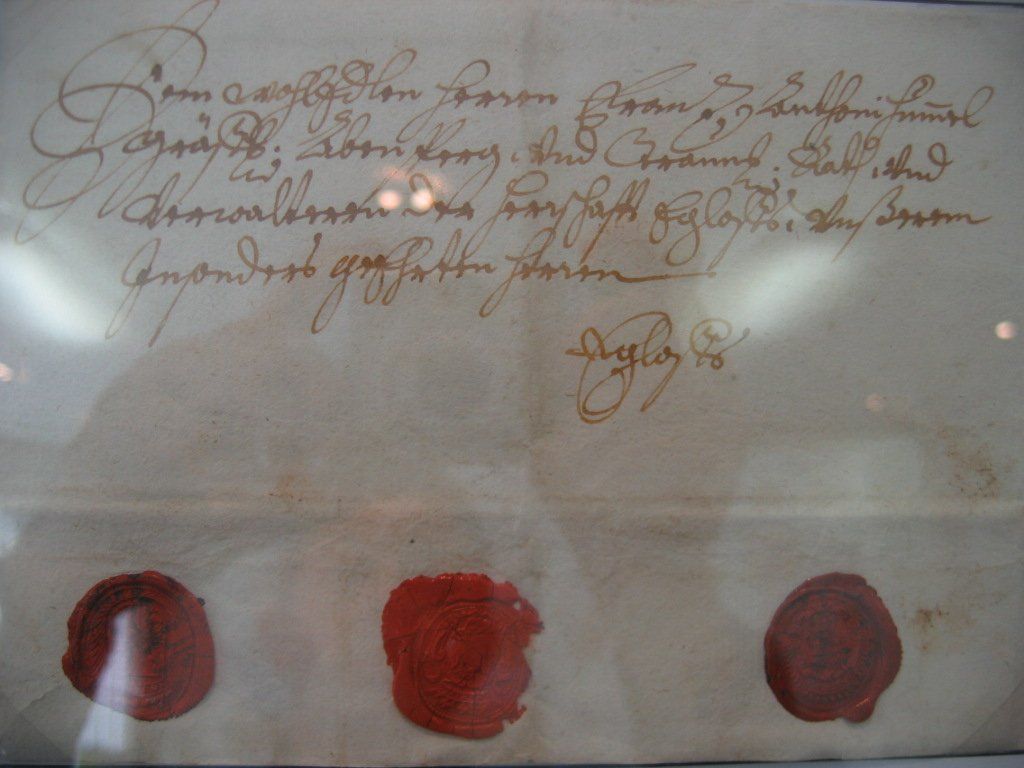 Dem WohlEdlen Herren Franz Anthoni Himmel
Gräffl: Aben Perg: und Traunn: Rath und
Verwalteren der Herrschafft Eglofs, Unßerem
Insonders geEhrten Herren
Eglofs